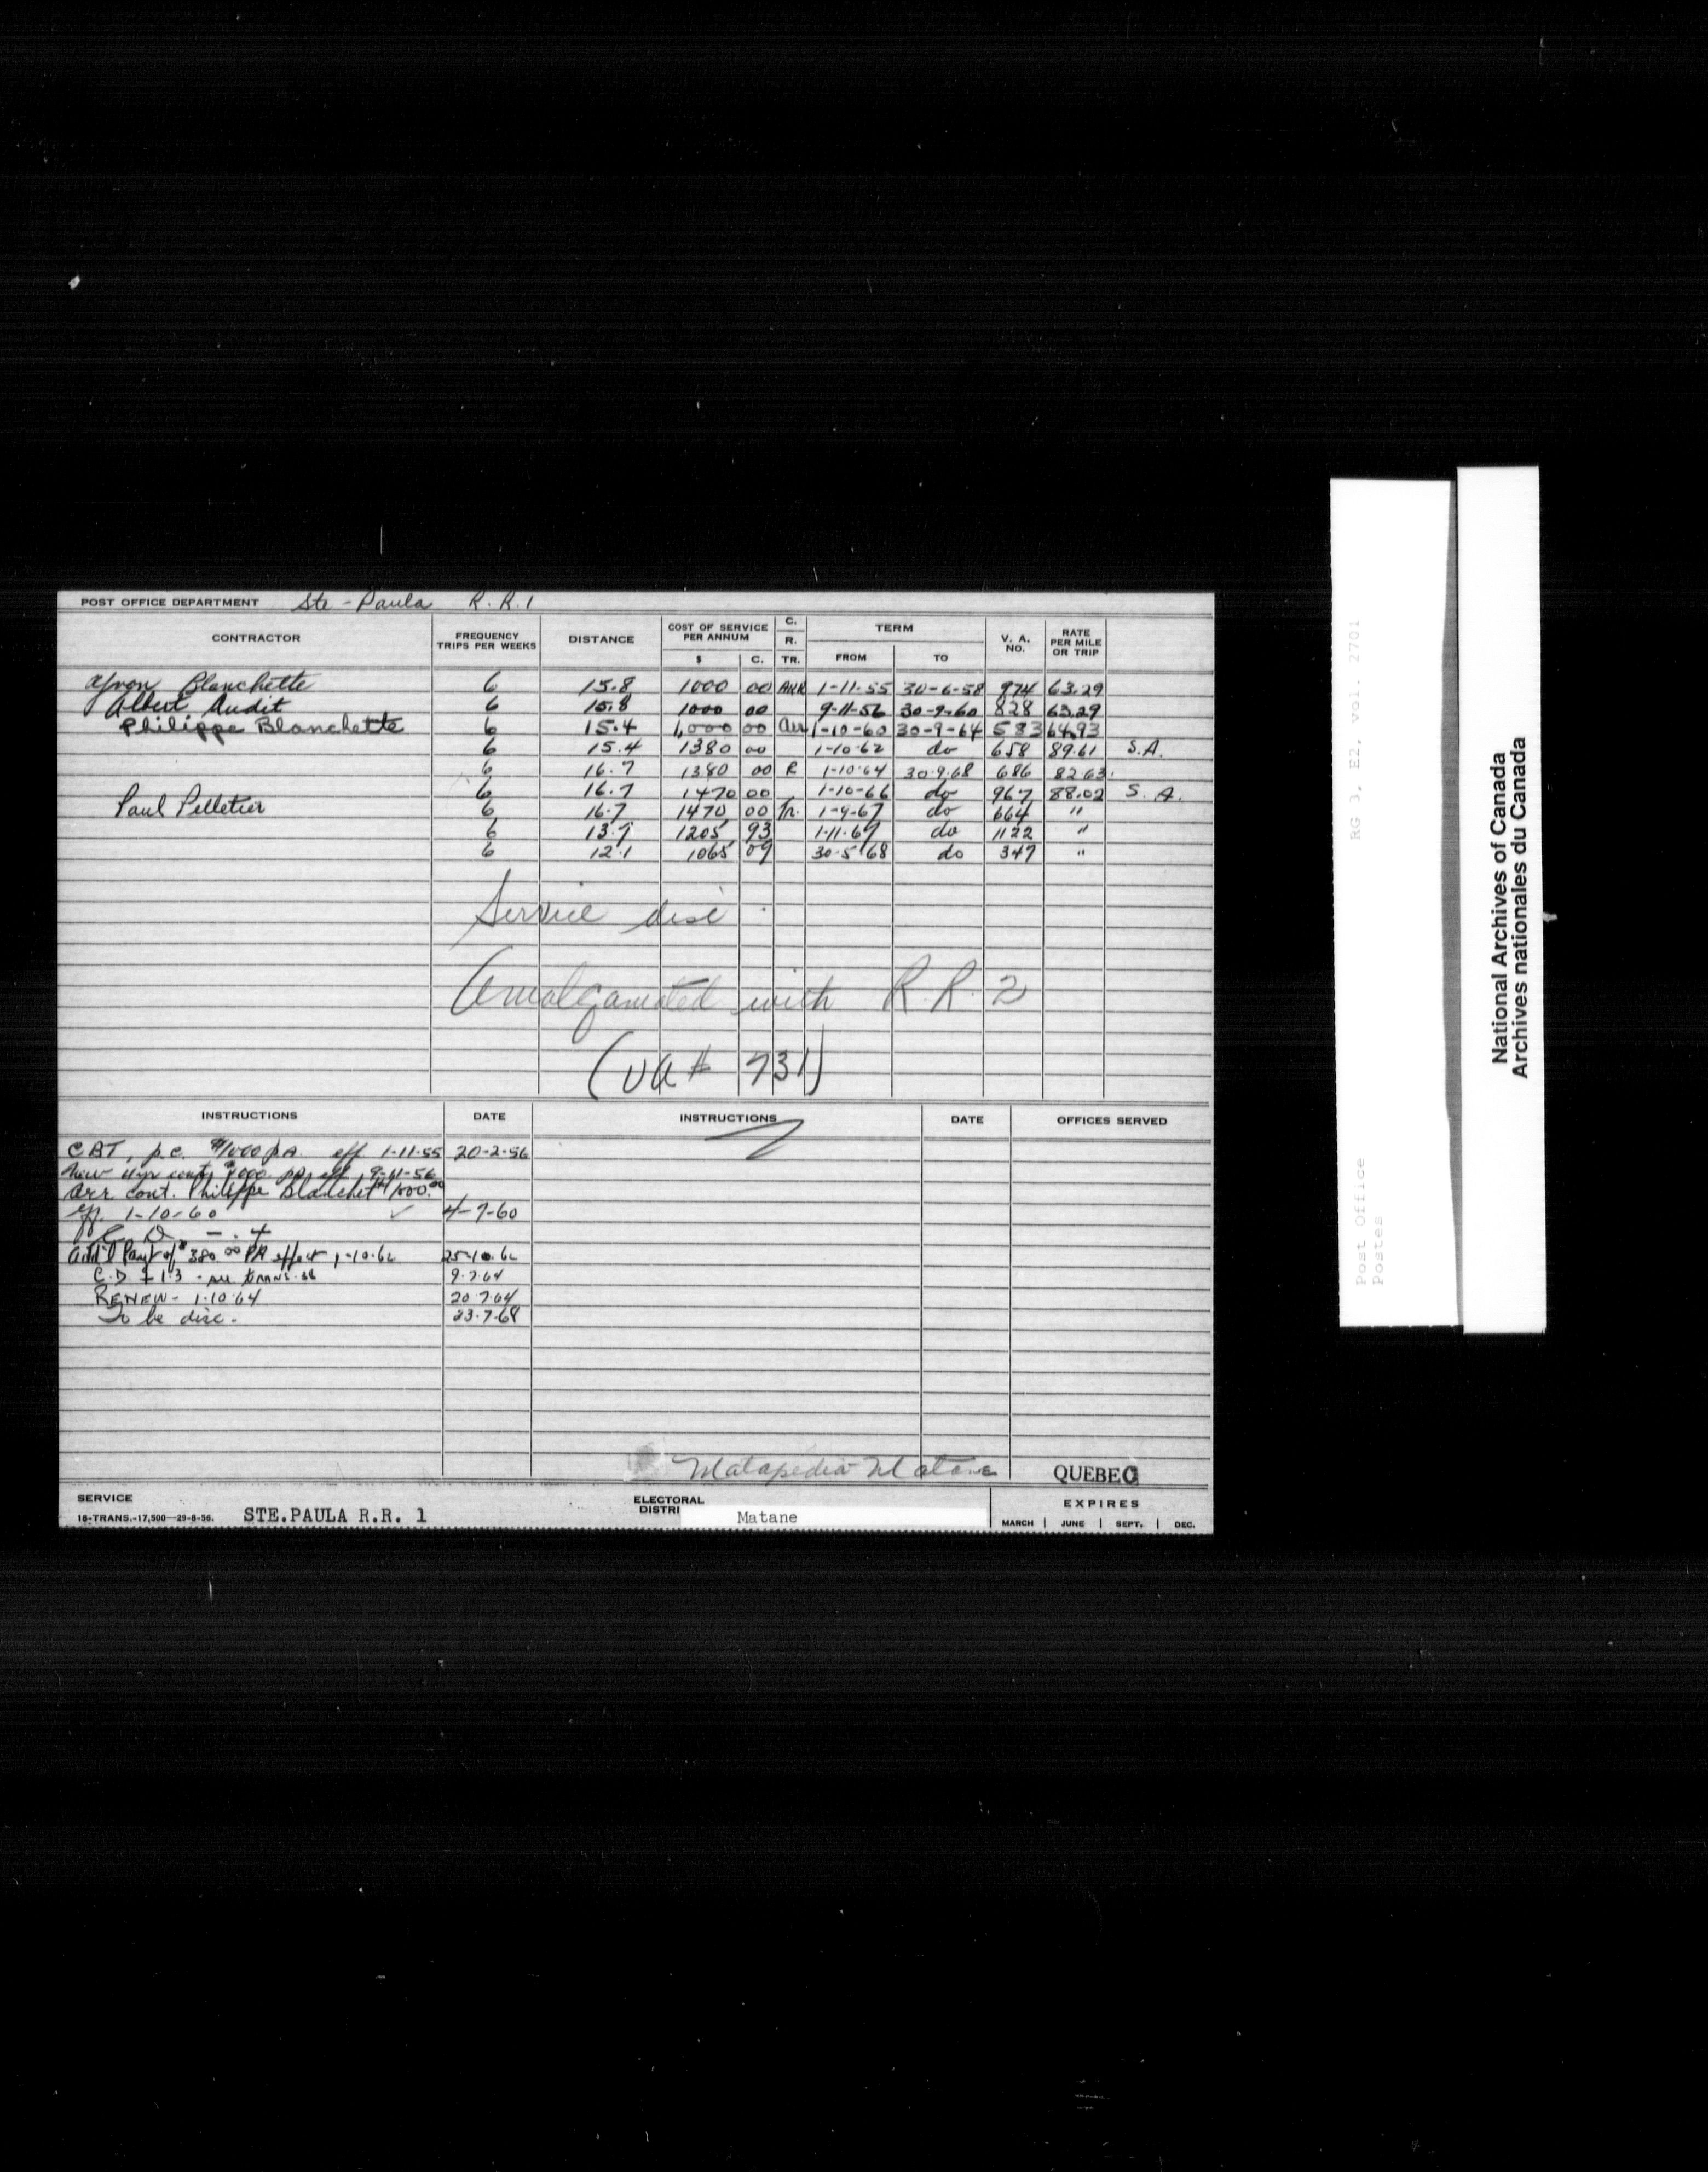 POST OFFICE DEPARTMENT Ste-Paula R.R.1
CONTRACTOR FREQUENCY TRIPS PER WEEKS DISTANCE COST OF SERVICE PER ANNUM $ C. C. R. TR. TERM FROM TO V. A. NO. RATE PER MILE OR TRIP
Yvon Blanchette 6 15.8 1000 00 ARR 1-11-55 30-6-58 974 63.29
Albert Audit 6 15.8 1000 00 9-11-56 30-9-60 828 63.29
Philippe Blanchette 6 15.4 1,000 00 arr 1-10-60 30-9-64 583 64.93
6 15.4 1380 00 1-10-62 do 658 89.61 S.A.
6 16.7 1380 00 R 1-10-64 30.9.68 686 82.63
6 16.7 1470 00 1-10-66 do 967 88.02 S.A.
Paul Pelletier 6 16.7 1470 00 Tr. 1-4-67 do 664 "
6 13.7 1205 93 1-11-67 do 1122 "
6 12.1 1065 09 30-5-68 do 347 "
Service disc
Amalgamated with R.R.2
(VA # 731)
INSTRUCTIONS DATE INSTRUCTIONS DATE OFFICES SERVED
CBT, p.c. $1000 p.a. eff 1-11-55 20-2-56
New 4 yr cont, $1000. pa eff 9-11-56
Arr cont. Philippe Blanchet $1000.00
eff. 1-10-60 ✓ 4-7-60
add'l Payt of $380.00 PA effect 1-10-62 25-10-62
C.D + 1.3 - 9.7.64
RENEW - 1.10.64 20.7.64
To be disc. 23.7.68
Matapedia-Matane QUEBEC
SERVICE
18-TRANS.-17,500—29-8-56. STE.PAULA R.R. 1
ELECTORAL
DISTRI Matane
EXPIRES
MARCH | JUNE | SEPT. | DEC.
RG 3, E2, vol. 2701
Post Office
Postes
National Archives of Canada
Archives nationales du Canada